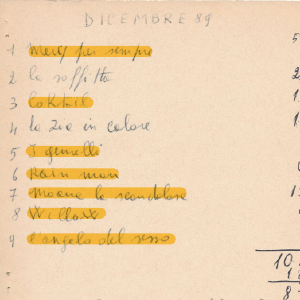 DICEMBRE 89
1 Mery per sempre
2 la soffitta
3 Coktail
4 la zia in calore
5 I gemelli
6 Rain man
7 Moana la scandalosa
8 Willow
9 l'angelo del sesso
10,
8